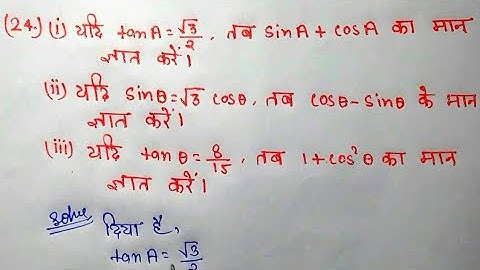 (24.) (i) यदि tanA = √3/2, तब sinA + cosA का मान
ज्ञात करें।
(ii) यदि sinθ = √3 cosθ, तब cosθ - sinθ के मान
ज्ञात करें।
(iii) यदि tanθ = 8/15, तब 1 + cos²θ का मान
ज्ञात करें।
Solve दिया है,
tanA = √3/2